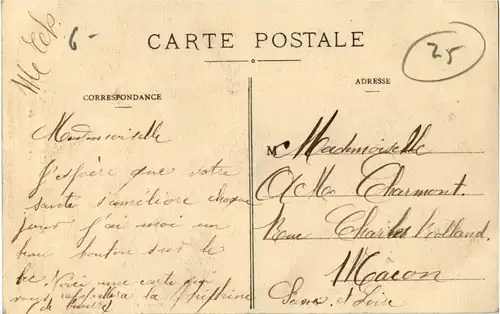 6-
CARTE POSTALE
25
CORRESPONDANCE
ADRESSE
Mademoiselle
J'espère que votre
santé s'améliore chaque
jour j'ai moi un
beau bouton sur le
Voici une carte qui
vous rappellera la
M Mademoiselle
M. Charmont.
Rue Charles
Mâcon
Saône et Loire